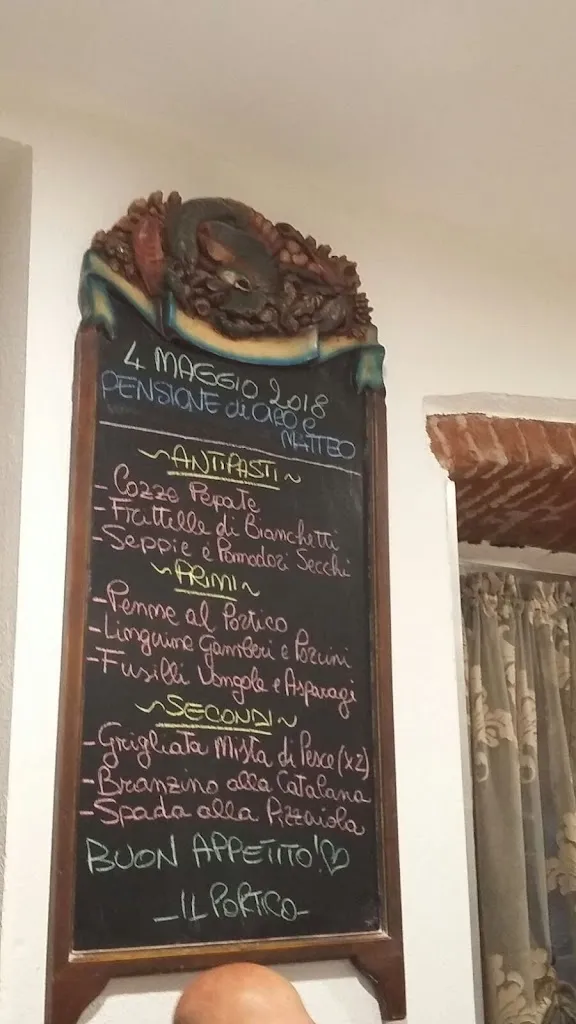 4 MAGGIO 2018
PENSIONE di CIRO e
MATTEO
~ANTIPASTI~
-Cozze Pepate
-Frittelle di Bianchetti
-Seppie e Pomodori Secchi
~PRIMI~
-Penne al Portico
-Linguine Gamberi e Porcini
-Fusilli Vongole e Asparagi
~SECONDI~
-Grigliata Mista di Pesce (x2)
-Branzino alla Catalana
-Spada alla Pizzaiola
BUON APPETITO!♡
-IL PORTICO-